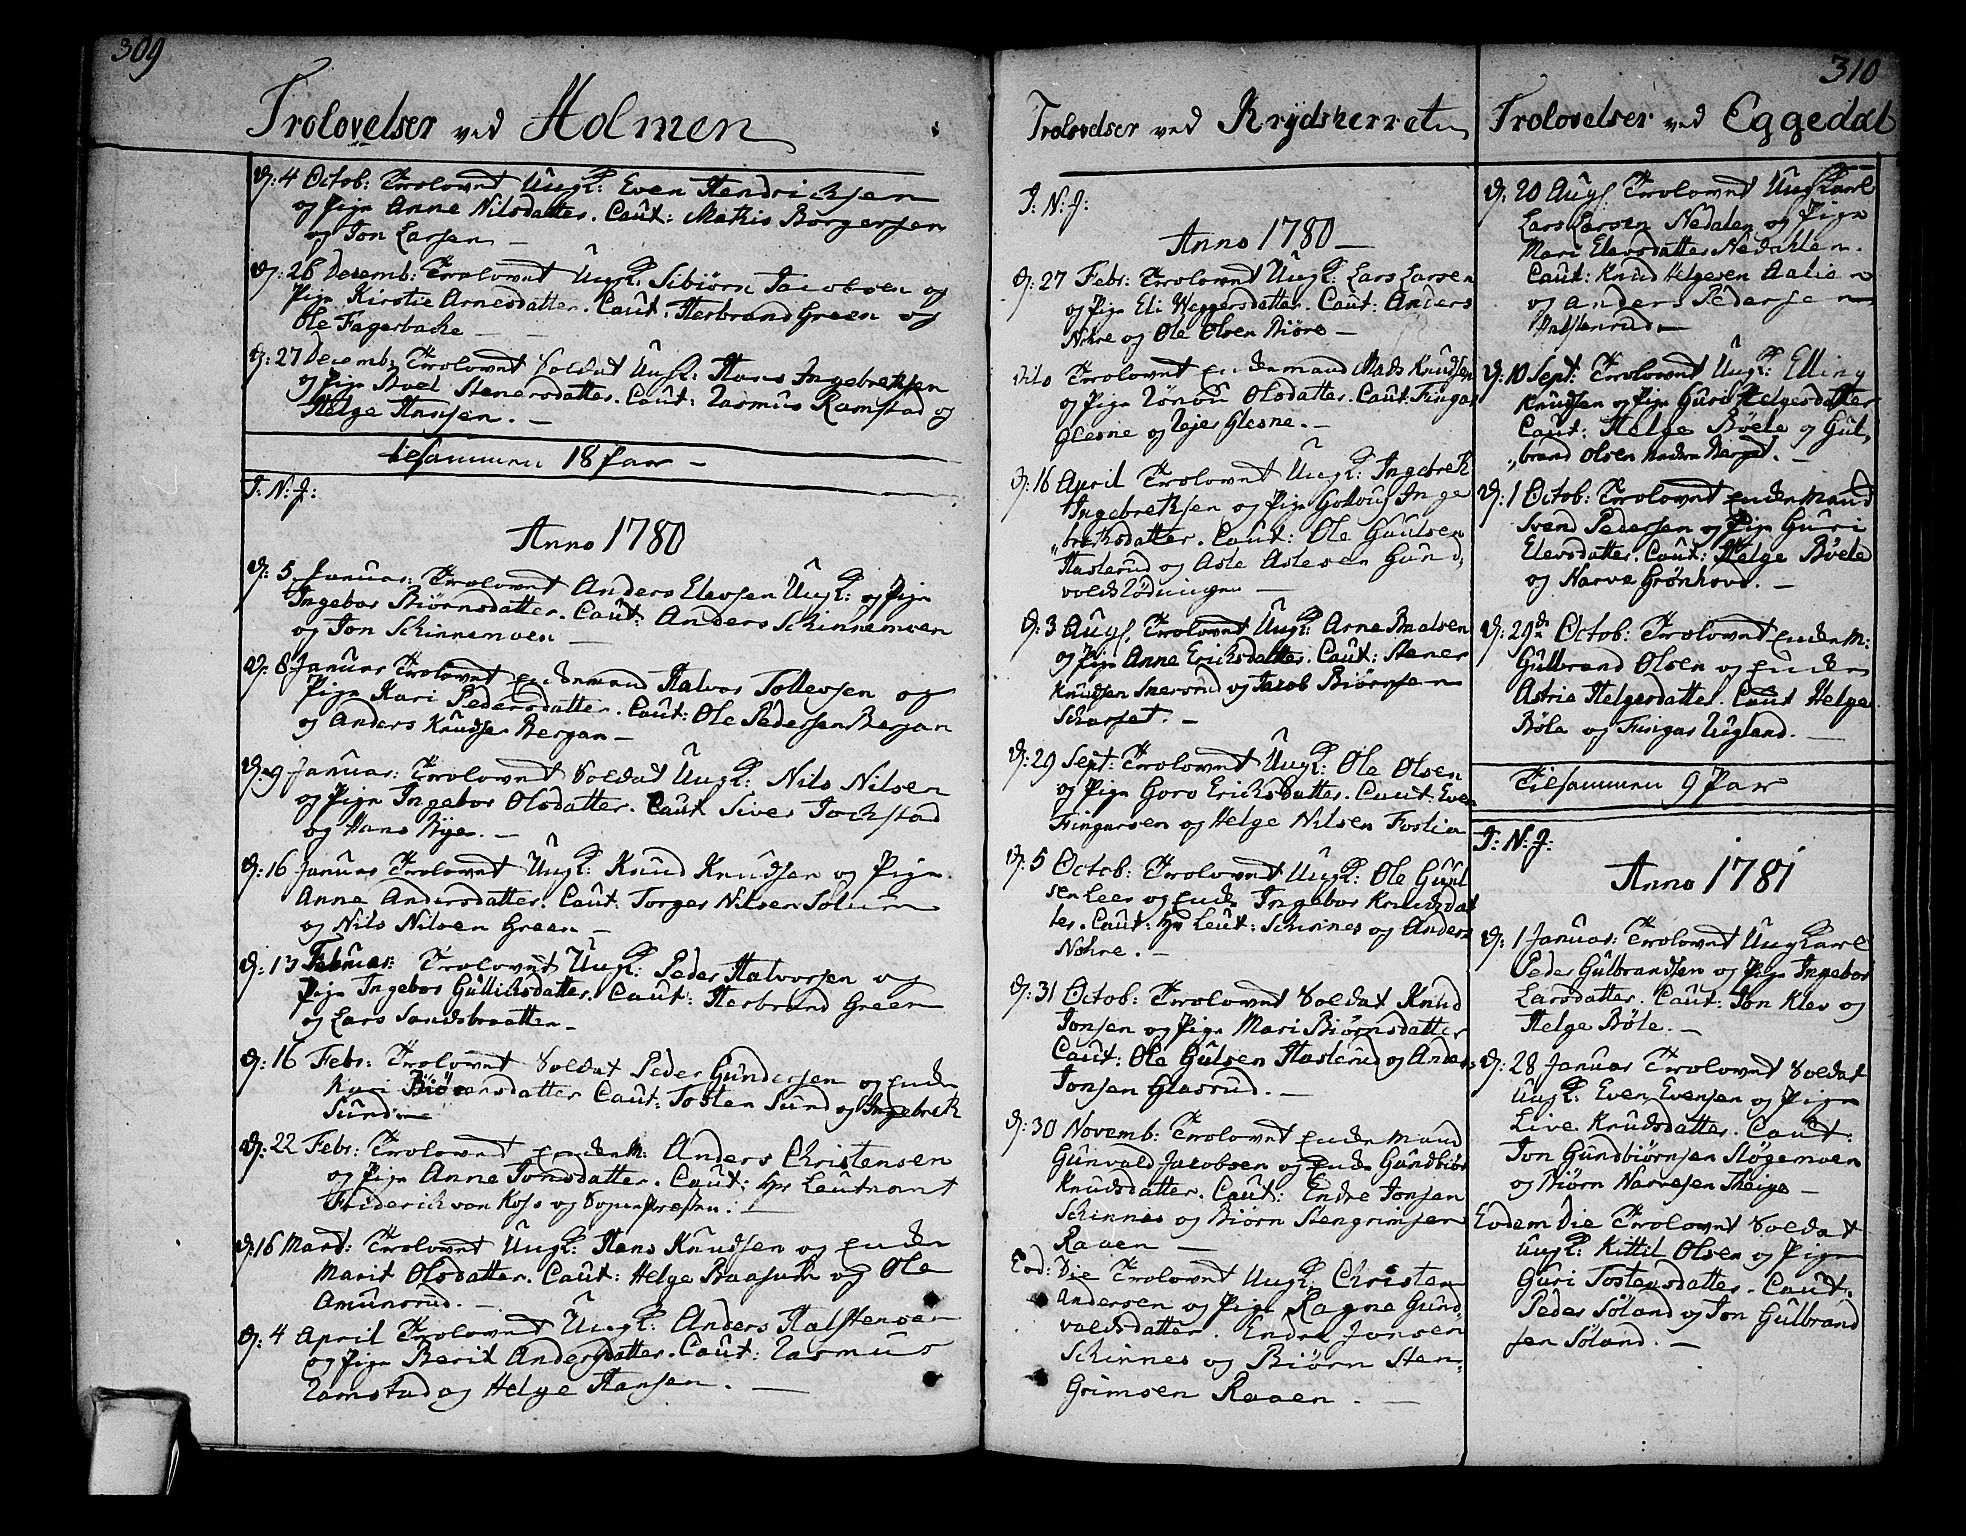 309
Trolovelser ved Holmen
D: 4 Octob: Trolovet Ungk: Even Hendrichsen
og Pige Anne Nilsdatter. Caut: Mathis Borgersen
og Jon Larsen —
D: 26 Decemb: Trolovet Ungk: Sibiörn Jacobsen og
Pige Kirstie Arnesdatter. Caut: Herbrand Green og
Ole Fagerbacke —
D: 27 Decemb: Trolovet Soldat Ungk: Hans Ingebretsen
og Pige Boel Stenersdatter. Caut: Rasmus Ramstad og
Helge Hansen. —
tilsammen 18 Par —
I: N: J:
Anno 1780
D: 5 Januar: Trolovet Anders Elevsen Ungk: og Pige
Ingebor Biörnsdatter. Caut: Anders Skinnemoen
og Jon Skinnemoen —
D: 8 Januar Trolovet Enckemand Halvor Tollevsen og
Pige Kari Pedersdatter. Caut: Ole Pedersen Bergan
og Anders Knudsen Bergan —
D: 9 Januar: Trolovet Soldat Ungk: Nils Nilsen
og Pige Ingebor Olsdatter. Caut Siver Jockstad
og Hans Rye. —
D: 16 Januar Trolovet Ungk: Knud Knudsen og Pige
Anne Andersdatter. Caut: Torger Nilsen Solum
og Nils Nilsen Green —
D: 13 Februar: Trolovet Ungk: Peder Halvorsen og
Pige Ingebor Gullicksdatter. Caut: Herbrand Green
og Lars Sandsbraatten —
D: 16 Febr: Trolovet Soldat Peder Gundersen og Encke
Kari Biörnsdatter Caut: Tosten Sund og Ingebrek
Sund —
D: 22 Febr: Trolovet Enckem: Anders Christensen
og Pige Anne Jonsdatter. Caut: Hr Leutnant
Friderich von Koss og Sogne Presten. —
D: 16 Mart: Trolovet Ungk: Hans Knudsen og Encke
Marit Olsdatter. Caut: Helge Braasuk og Ole
Amunsrud. —
D: 4 April Trolovet Ungk: Anders Halstensen
og Pige Berit Andersdatter. Caut: Rasmus
Ramstad og Helge Hansen. —
Trolovelser ved Krydsherret
I: N: J:
Anno 1780 —
D: 27 Febr: Trolovet Ungk: Lars Larsen
og Pige Eli Weggersdatter. Caut: Anders
Nohre og Ole Olsen Biöre —
dito Trolovet Enckemand Mads Knudsen
og Pige Rönou Olsdatter. Caut: Fingar
Glesne og Rejer Glesne. —
D: 16 April Trolovet Ungk: Ingebrek
Ingebretsen og Pige Gollou Inge
„breksdatter. Caut: Ole Guulsen
Haslerud og Asle Aslesen Gund,
volds Rödningen —
D: 3 Aug. Trolovet Ungk: Arne
og Pige Anne Ericksdatter. Caut: Stener
Knudsen Snersrud og Jacob Biörnsen
Skarset. —
D: 29 Sept: Trolovet Ungk: Ole Olsen
og Pige Goro Ericksdatter. Caut: Even
Fingarsen og Helge Nilsen Foslie
D: 5 Octob: Trolovet Ungk: Ole Guul
sen Leer og Encke Ingebor Knudsdat
ter. Caut: Hr Leut: Skinnes og Anders
Nohre. —
D: 31 Octob: Trolovet Soldat Knud
Jonsen og Pige Mari Biörnsdatter
Caut: Ole Gulsen Haslerud og Anders
Jonsen Glasrud. —
D: 30 Novemb: Trolovet Enckemand
Gunvald Jacobsen og Encke Gundbiör
Knudsdatter. Caut: Endre Jonsen
Skinnes og Biörn Stengrimsen
Raaen —
Eod: Die Trolovet Ungk: Christen
Andersen og Pige Ragne Gund,
voldsdatter. Endre Jonsen
Skinnes og Biörn Sten,
Grimsen Raaen. —
310
Trolovelser ved Eggedal
D: 20 Aug. Trolovet Ungkarl
Lars Larsen Nedalen og Pige
Mari Elevsdatter Nedahlen.
Caut: Knud Helgesen Aalien
og Anders Pedersen
Halstenrud —
D: 10 Sept: Trolovet Ungk: Elling
Knudsen og Pige Guri Helgesdatter
Caut: Helge Böele og Gul,
„brand Olsen Nedre Berget. —
D: 1 Octob: Trolovet Enckemand
Svend Pedersen og Pige Guri
Elevsdatter. Caut: Helge Böele
og Narve Grönhovd. —
D: 29de Octob: Trolovet Enckem:
Gulbrand Olsen og Encke
Astrie Helgesdatter. Caut Helge
Böle og Fingar Ugland. —
Tilsammen 9 Par
I: N: J:
Anno 1781
D: 1 Januar: Trolovet Ungkarl
Peder Gulbrandsen og Pige Ingebor
Larsdatter. Caut: Jon Klev og
Helge Böle. —
D: 28 Januar Trolovet Soldat
Ungk: Even Evensen og Pige
Live Knudsdatter. Caut:
Jon Gundbiörnsen Slögemoen
og Biörn Narvesen Thöige —
Eodem Die Trolovet Soldat
Ungk: Kittil Olsen og Pige
Guri Tostensdatter. Caut:
Peder Söland og Jon Gulbrand
sen Söland. —